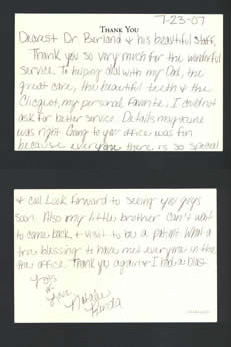 7-23-07
THANK YOU
Dearest Dr. Berland & his beautiful staff,
Thank you so very much for the wonderful
service. To helping deal with my Dad, the
great care, the beautiful teeth & the
Clicquot, my personal favorite, I could not
ask for better service. Details my
was right. Going to your office was fun
because everyone there is so special
& cool. Look forward to seeing you guys
soon. Also my little brother can't wait
to come back, & wants to be a patient. What a
true blessing to have met everyone in the
office. Thank you again & I had a blast
Love
Natalie